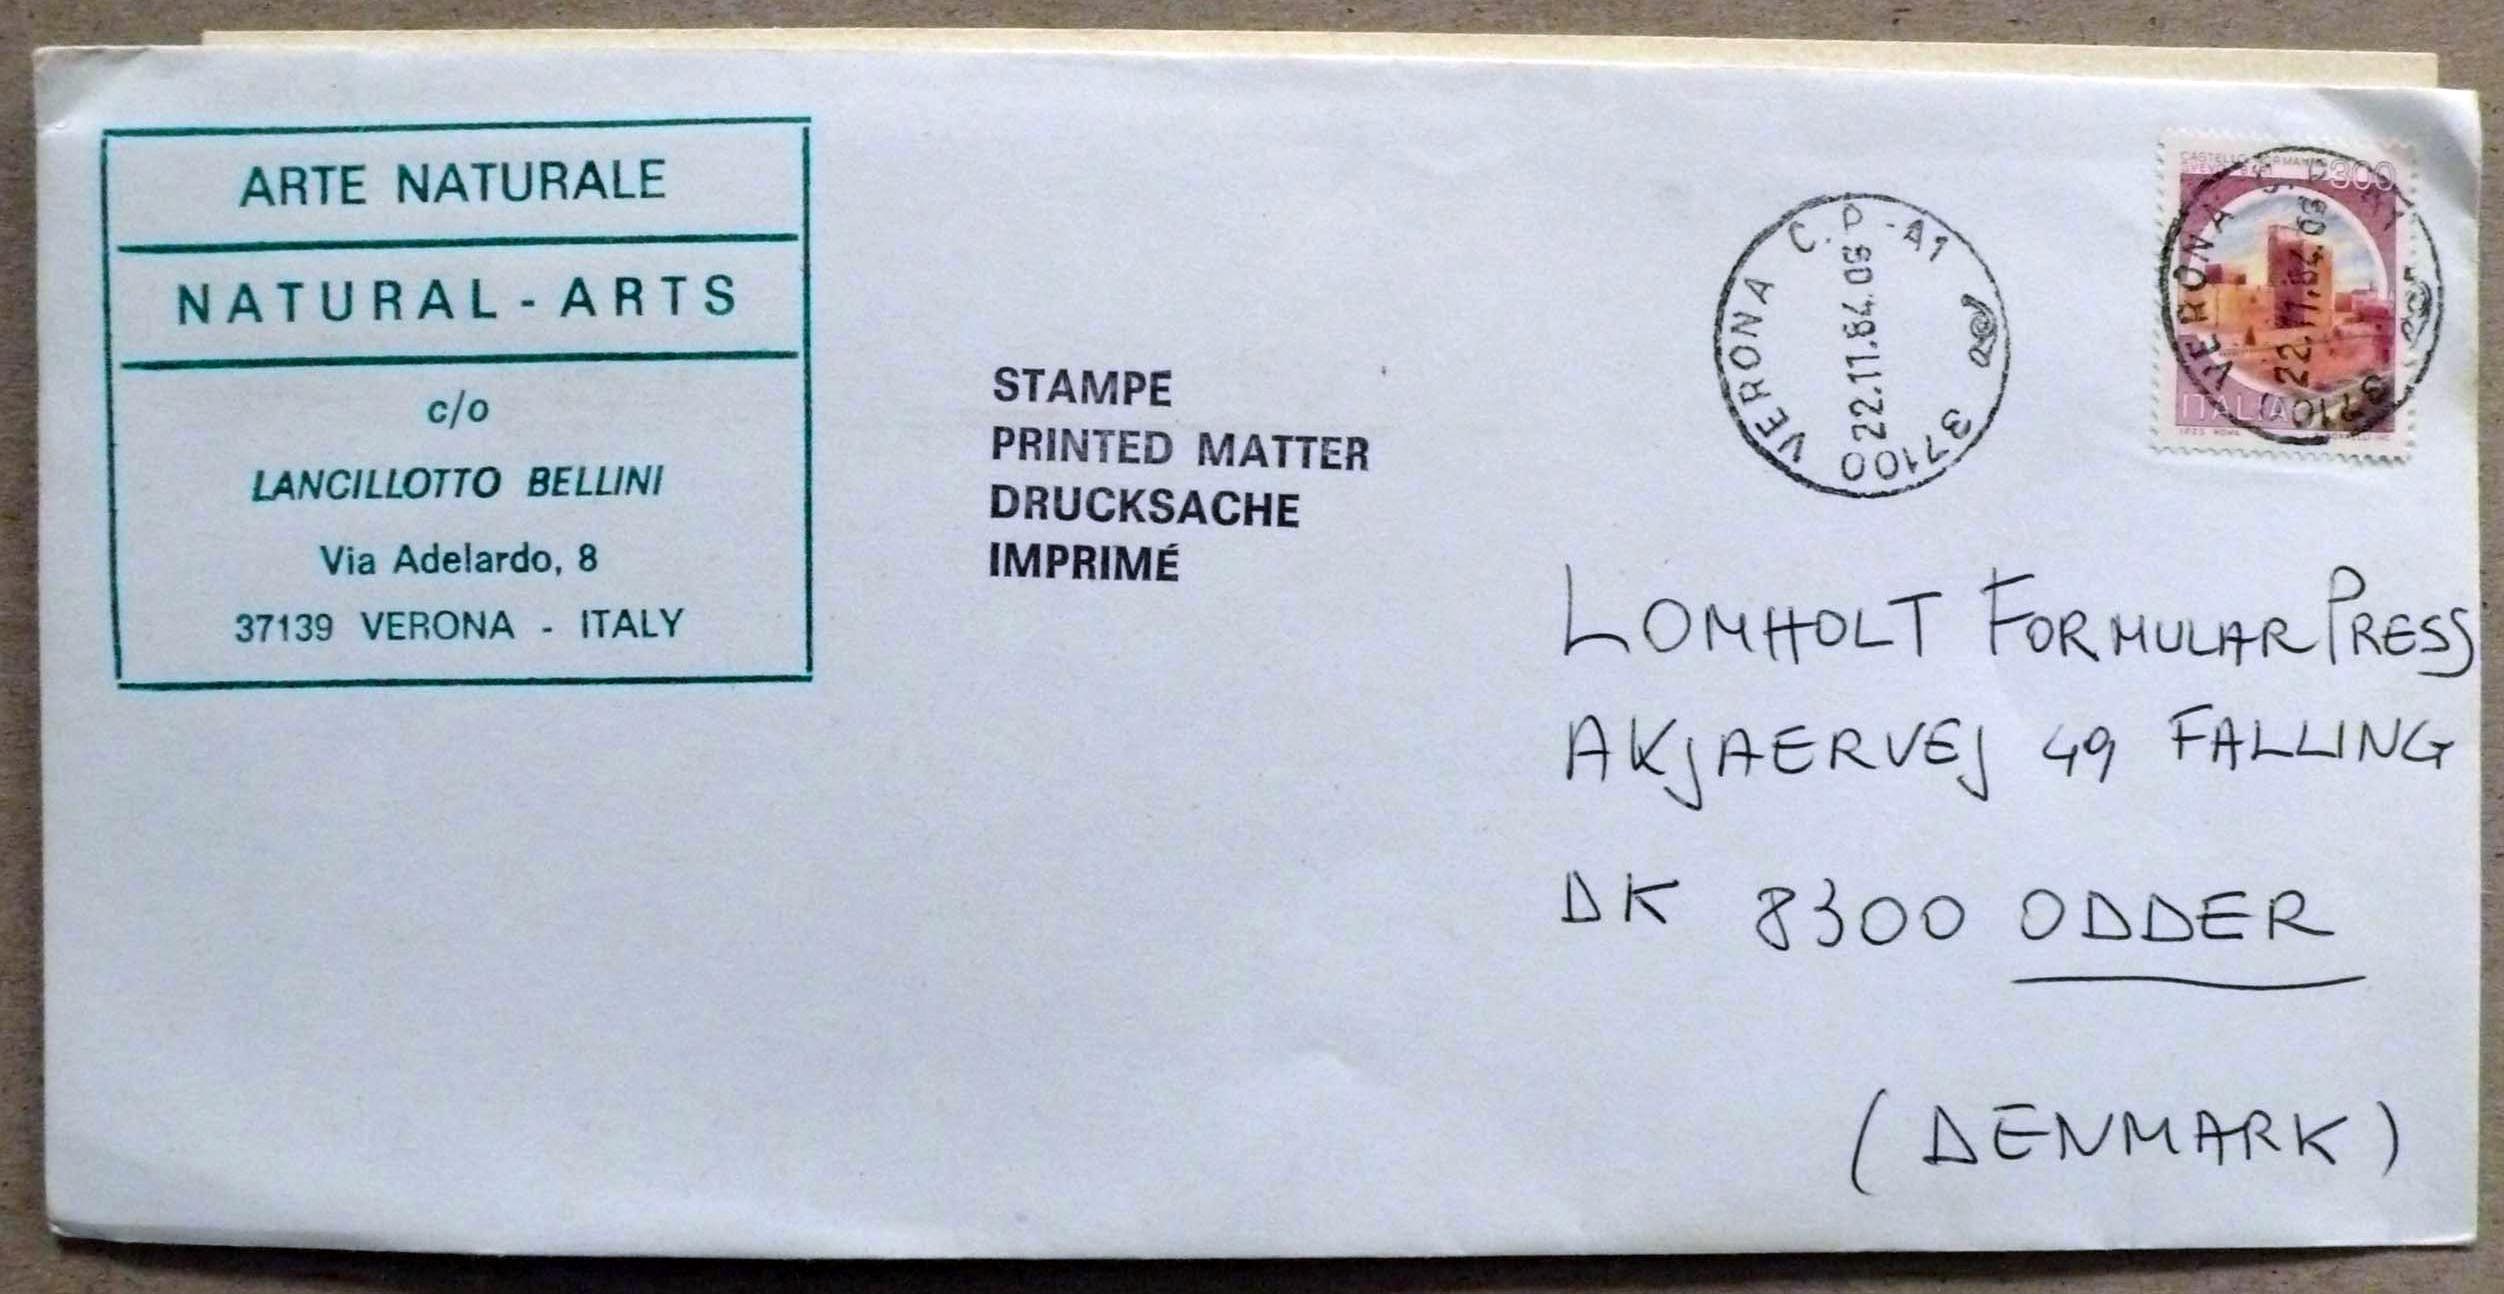 ARTE NATURALE
NATURAL - ARTS
c/o
LANCILLOTTO BELLINI
Via Adelardo, 8
37139 VERONA - ITALY
STAMPE
PRINTED MATTER
DRUCKSACHE
IMPRIMÉ
VERONA C.P.-A1
22.11.84.09
37100
CASTELLO
300
VERONA
22.11.84.09
37100
ITALIA
ROMA
LOMHOLT FORMULAR PRESS
AKJAERVEJ 49 FALLING
DK 8300 ODDER
(DENMARK)